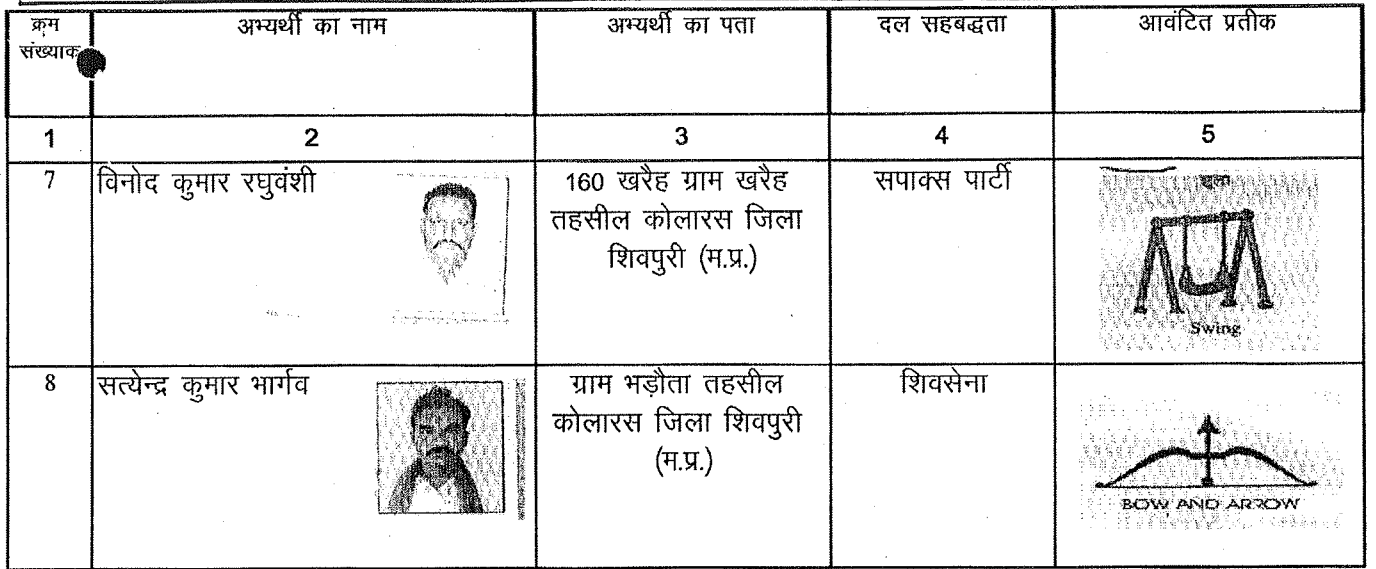 क्रम संख्याक अभ्यर्थी का नाम अभ्यर्थी का पता दल सहबद्धता आवंटित प्रतीक
1 2 3 4 5
7 विनोद कुमार रघुवंशी 160 खरैह ग्राम खरैह सपाक्स पार्टी झूला
तहसील कोलारस जिला
शिवपुरी (म.प्र.)
Swing
8 सत्येन्द्र कुमार भार्गव ग्राम भड़ौता तहसील शिवसेना
कोलारस जिला शिवपुरी
(म.प्र.)
BOW AND ARROW